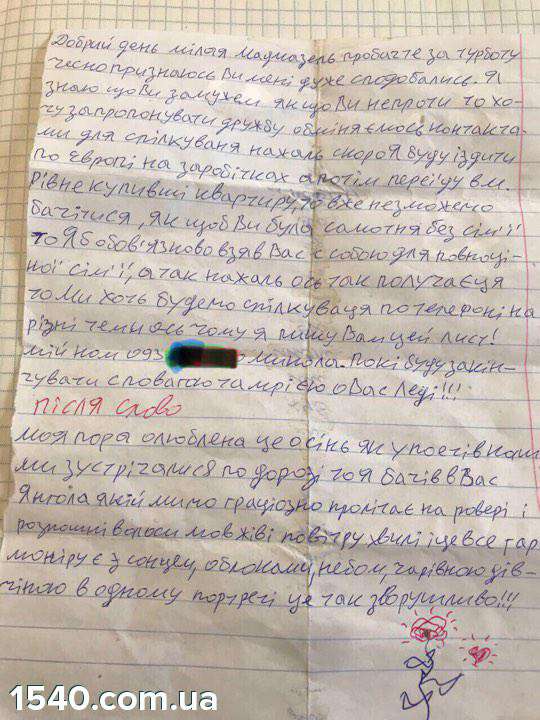 Добрий день мілая мадмазель пробачте за турботу
чесно признаюсь Ви мені дуже сподобались. Я
знаю що Ви замужем якщо Ви непроти то хо-
чу запропонувати дружбу обміняємось контакта-
ми для спілкуваня нажаль скоро Я буду їздити
по Європі на заробітках а потім переїду в м.
рівне купивши квартиру, то вже незможемо
бачітися, як щоб Ви були самотня без сім'ї
то Я б обов'язково взяв Вас с собою для повноці-
ної сім'ї, а так нажаль ось так получаєця
то Ми хоть будемо спілкуваця по телефоні на
різні теми ось чому я пишу Вам цей лист!
мій ном 093 Микола. Покі буду закін-
чувати с повагою та мрією о Вас Леді!!!
після слово
моя пора олюблена це осінь як у поетів коли
ми зустрічалися по дорозі то Я бачів в Вас
Янгола який мимо граціозно пролітає на ровері і
розкошні волоси мов живі повітру хвилі і це все гар
монірує з сонцем, облоками, небом, чарівною дів-
чіною в одному портреті це так зворушливо!!!
1540.com.ua